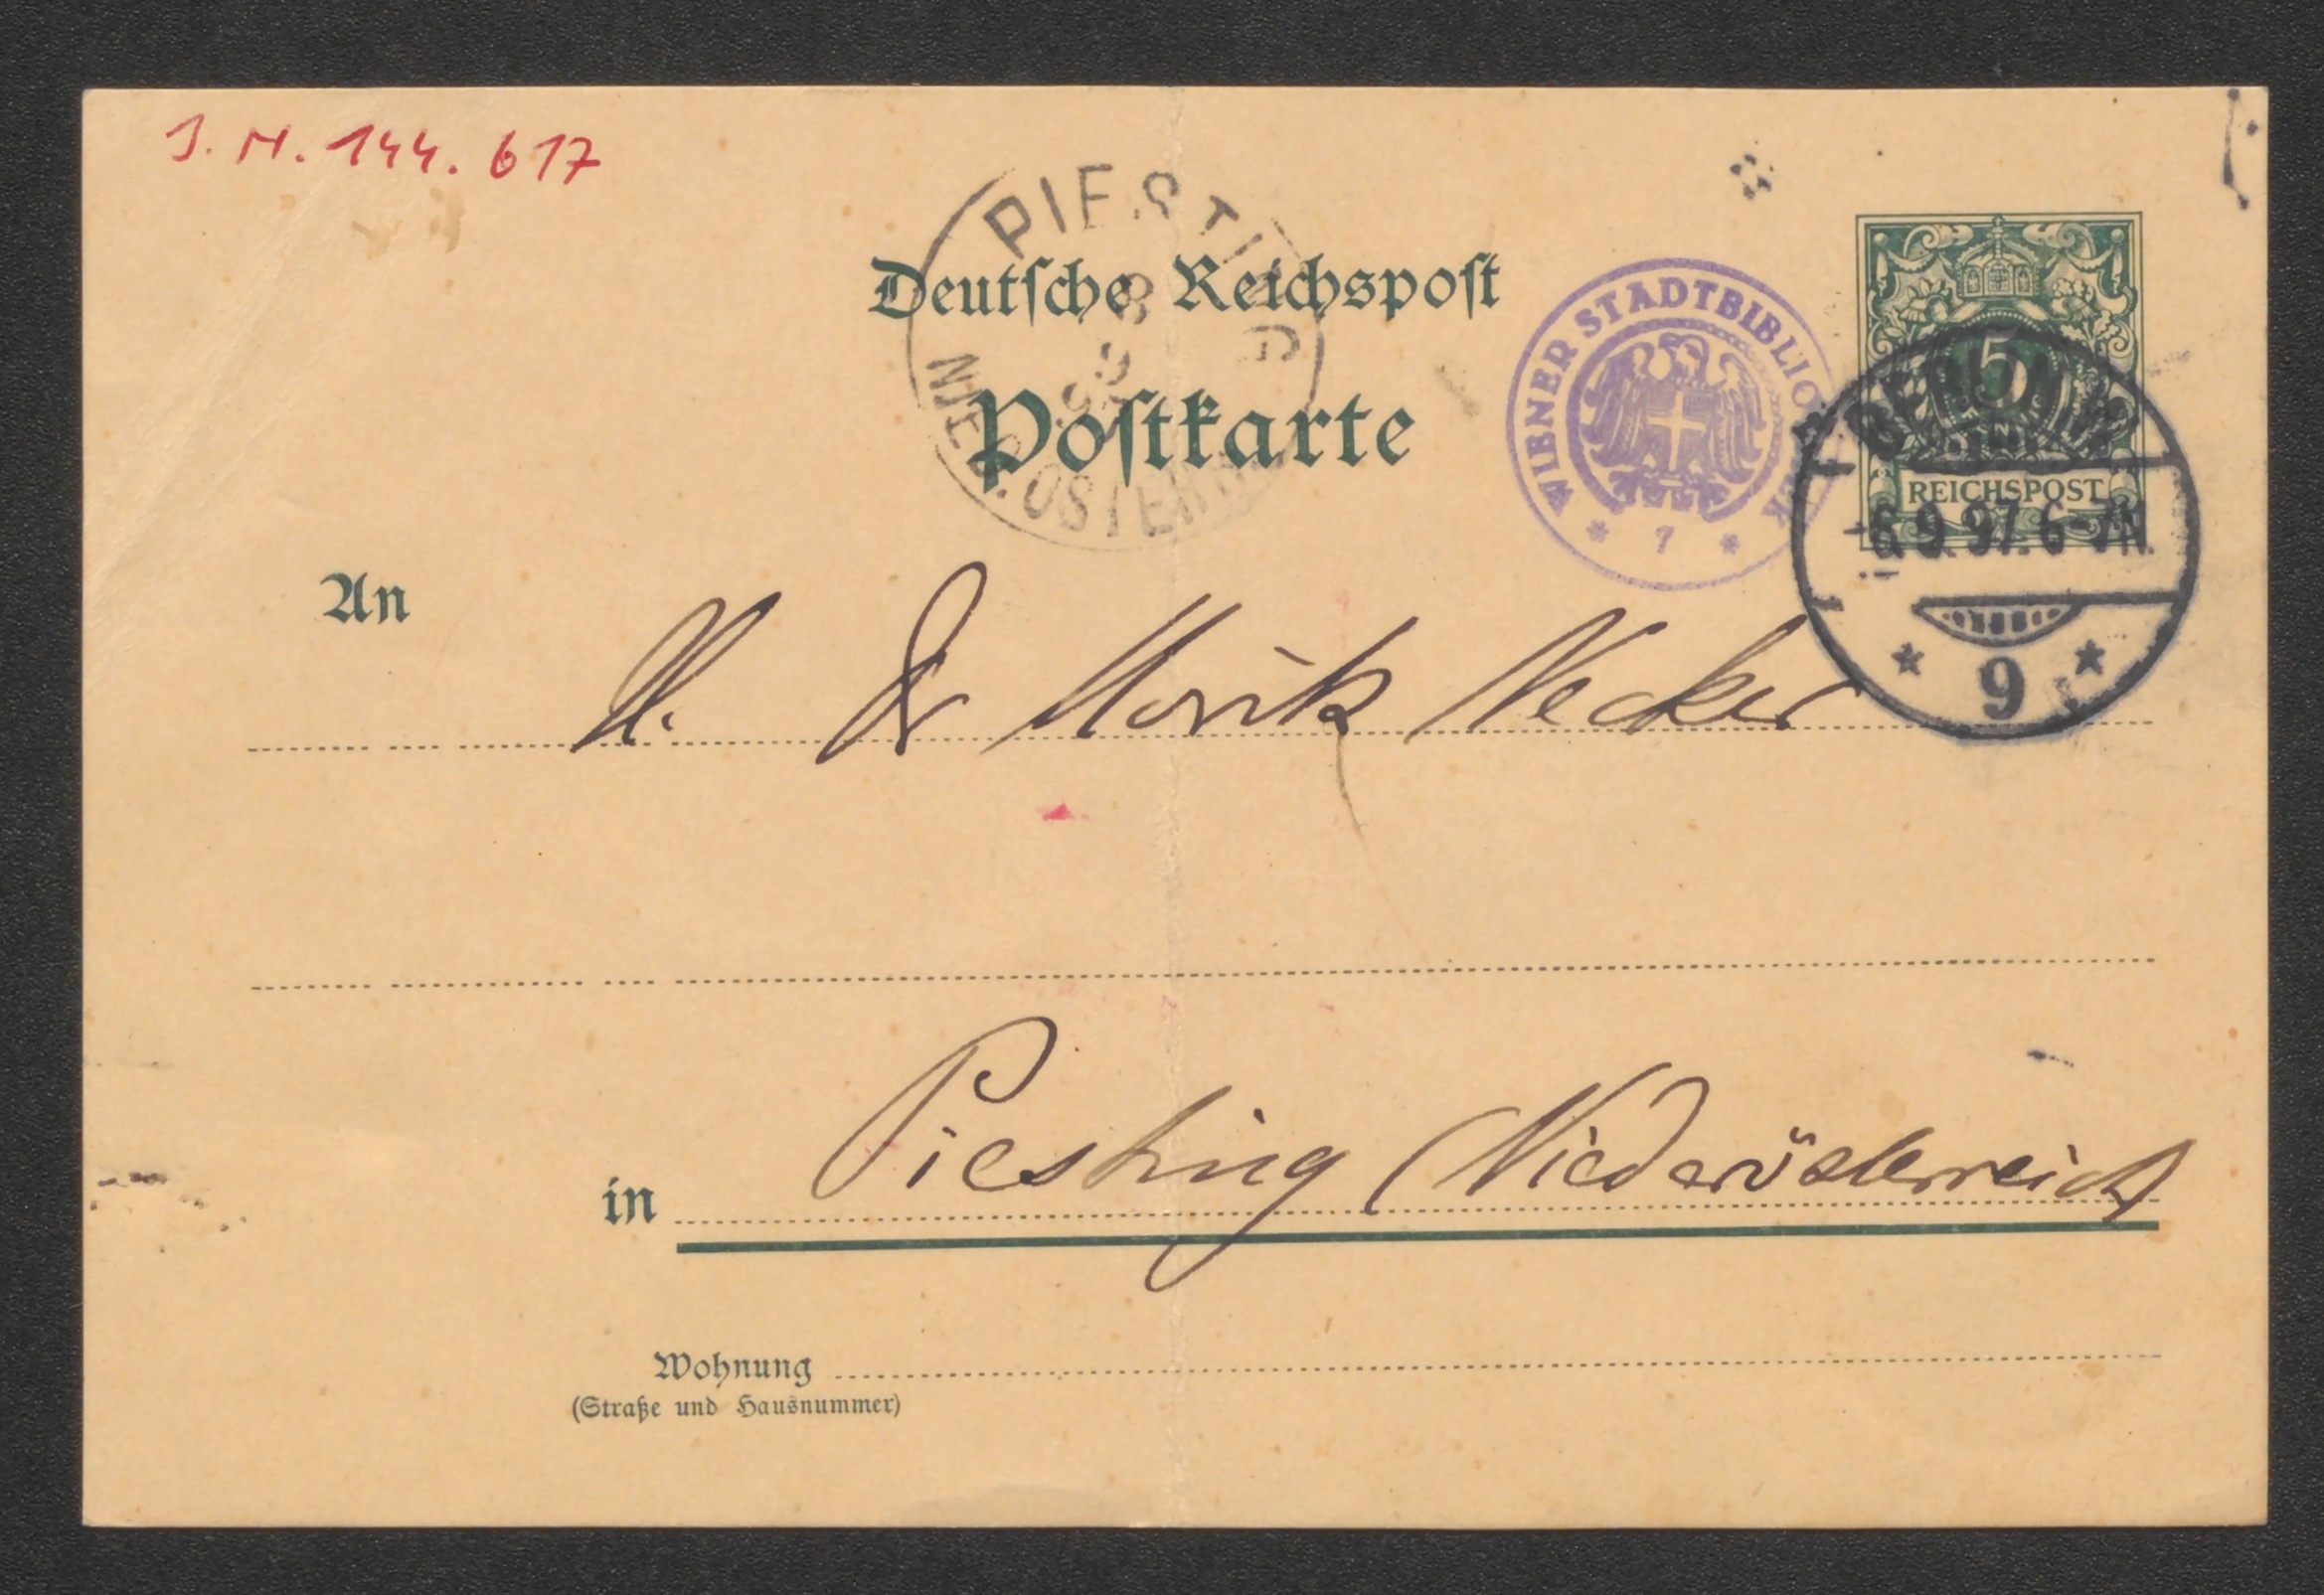 J. N. 144.617
Deutsche Reichspost
Postkarte
WIENER STADTBIBLIOTHEK
* 7 *
5
REICHSPOST
BERLIN
6.9.97. 6-7N.
* 9 *
An
H. Dr Moritz Necker
in Piesting (Niederösterreich)
Wohnung
(Straße und Hausnummer)